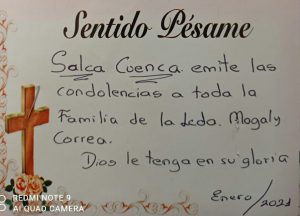 Sentido Pésame
Salca Cuenca emite las
condolencias a toda la
Familia de la Lcda. Magaly
Correa.
Dios le tenga en su gloria
Enero / 2021
REDMI NOTE 9
AI QUAD CAMERA